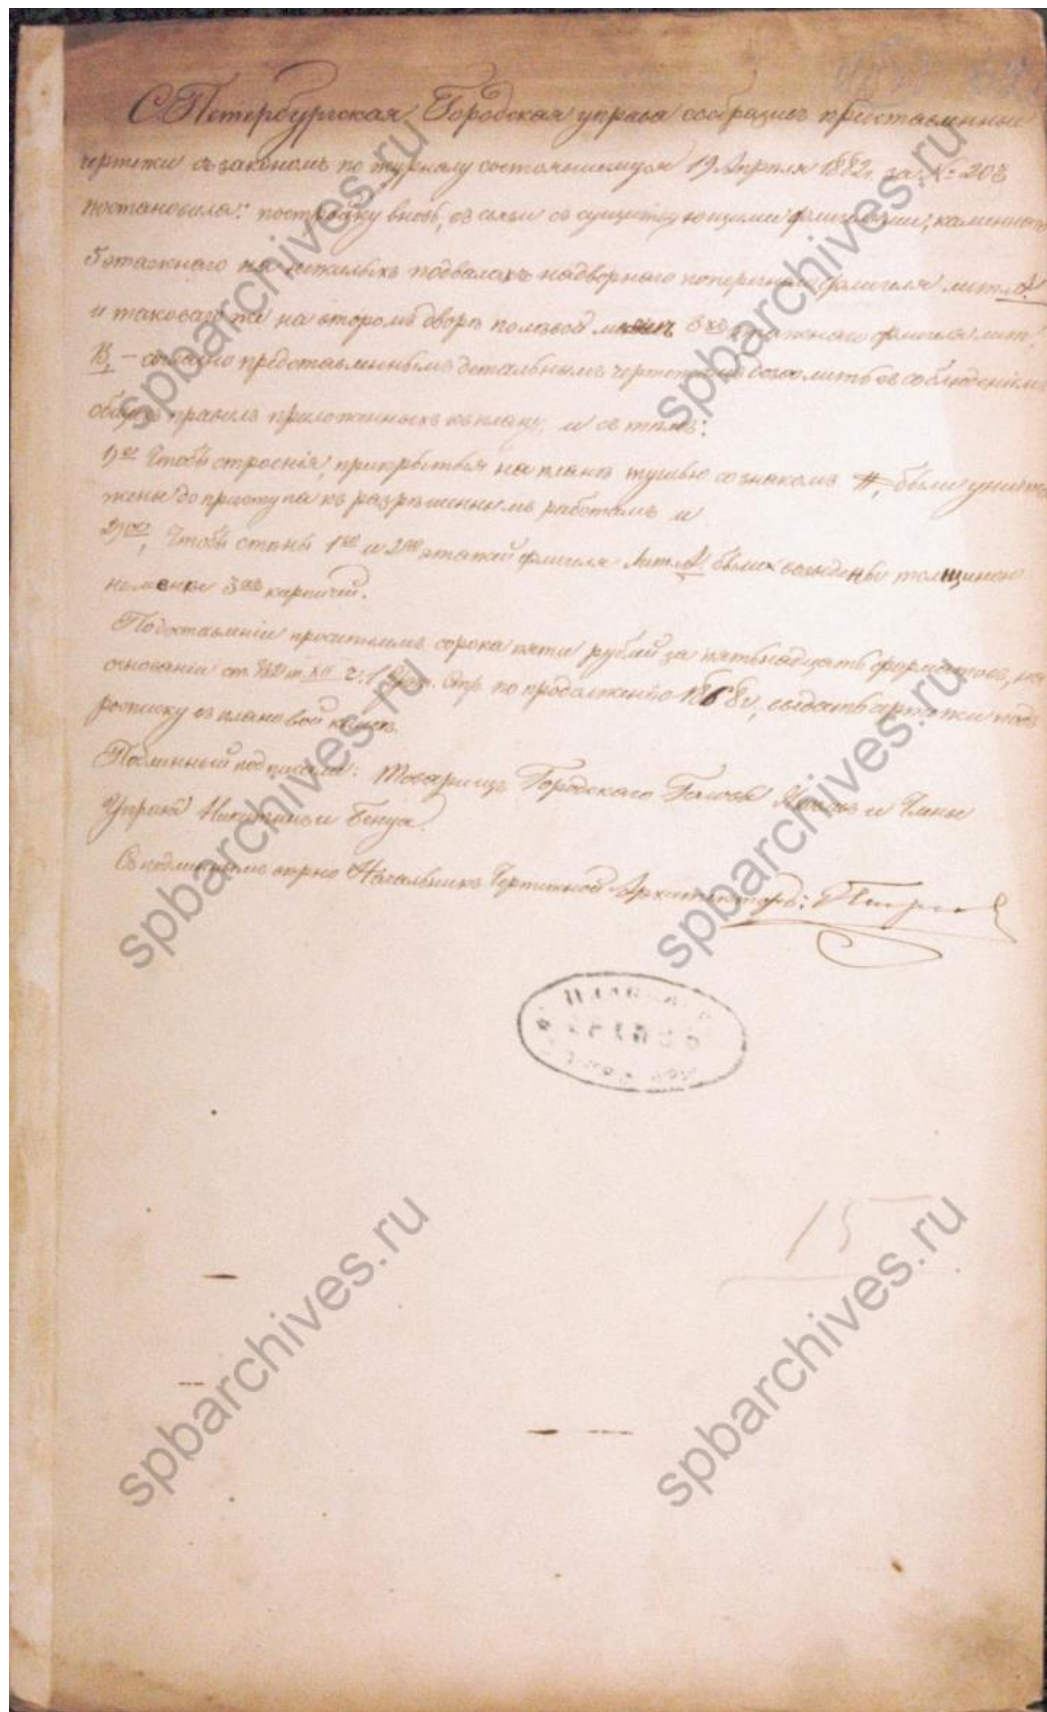 С.Петербургская Городская управа сообразивъ представленные
чертежи съ закономъ по журналу состоявшемуся 19 Апрѣля 1882 г. за № 208
постановила: постройку вновь, въ связи съ существующими флигелями, каменнаго
5 этажнаго на нежилыхъ подвалахъ надворнаго поперечнаго флигеля лит. А
и таковаго же на второмъ дворѣ по лѣвой межѣ 3хъ этажнаго флигеля лит.
В, – согласно представленнымъ детальнымъ чертежамъ дозволить съ соблюденіемъ
общихъ правилъ приложенныхъ къ плану, и съ тѣмъ:
1)ое Чтобы строенія, прикрытыя на планѣ тушью со знакомъ #, были уничто
жены до приступа къ разрѣшеннымъ работамъ и
2)ое, Чтобы стѣны 1го и 2го этажей флигеля Лит. А были возведены толщиною
не менѣе 3хъ кирпичей.
По доставленіи просителемъ сорока пяти рублей за пятьнадцать форматовъ, на
основаніи ст. т. XII ч. 1 по продолженію 1868 г., выдать чертежи подъ
росписку въ плановой книгѣ.
Подлинный подписали: Товарищъ Городскаго Головы и Члены
Управы Никитинъ и Бенуа.
Съ подлиннымъ вѣрно Начальникъ Чертежной Архитекторъ:
15
spbarchives.ru
spbarchives.ru
spbarchives.ru
spbarchives.ru
spbarchives.ru
spbarchives.ru